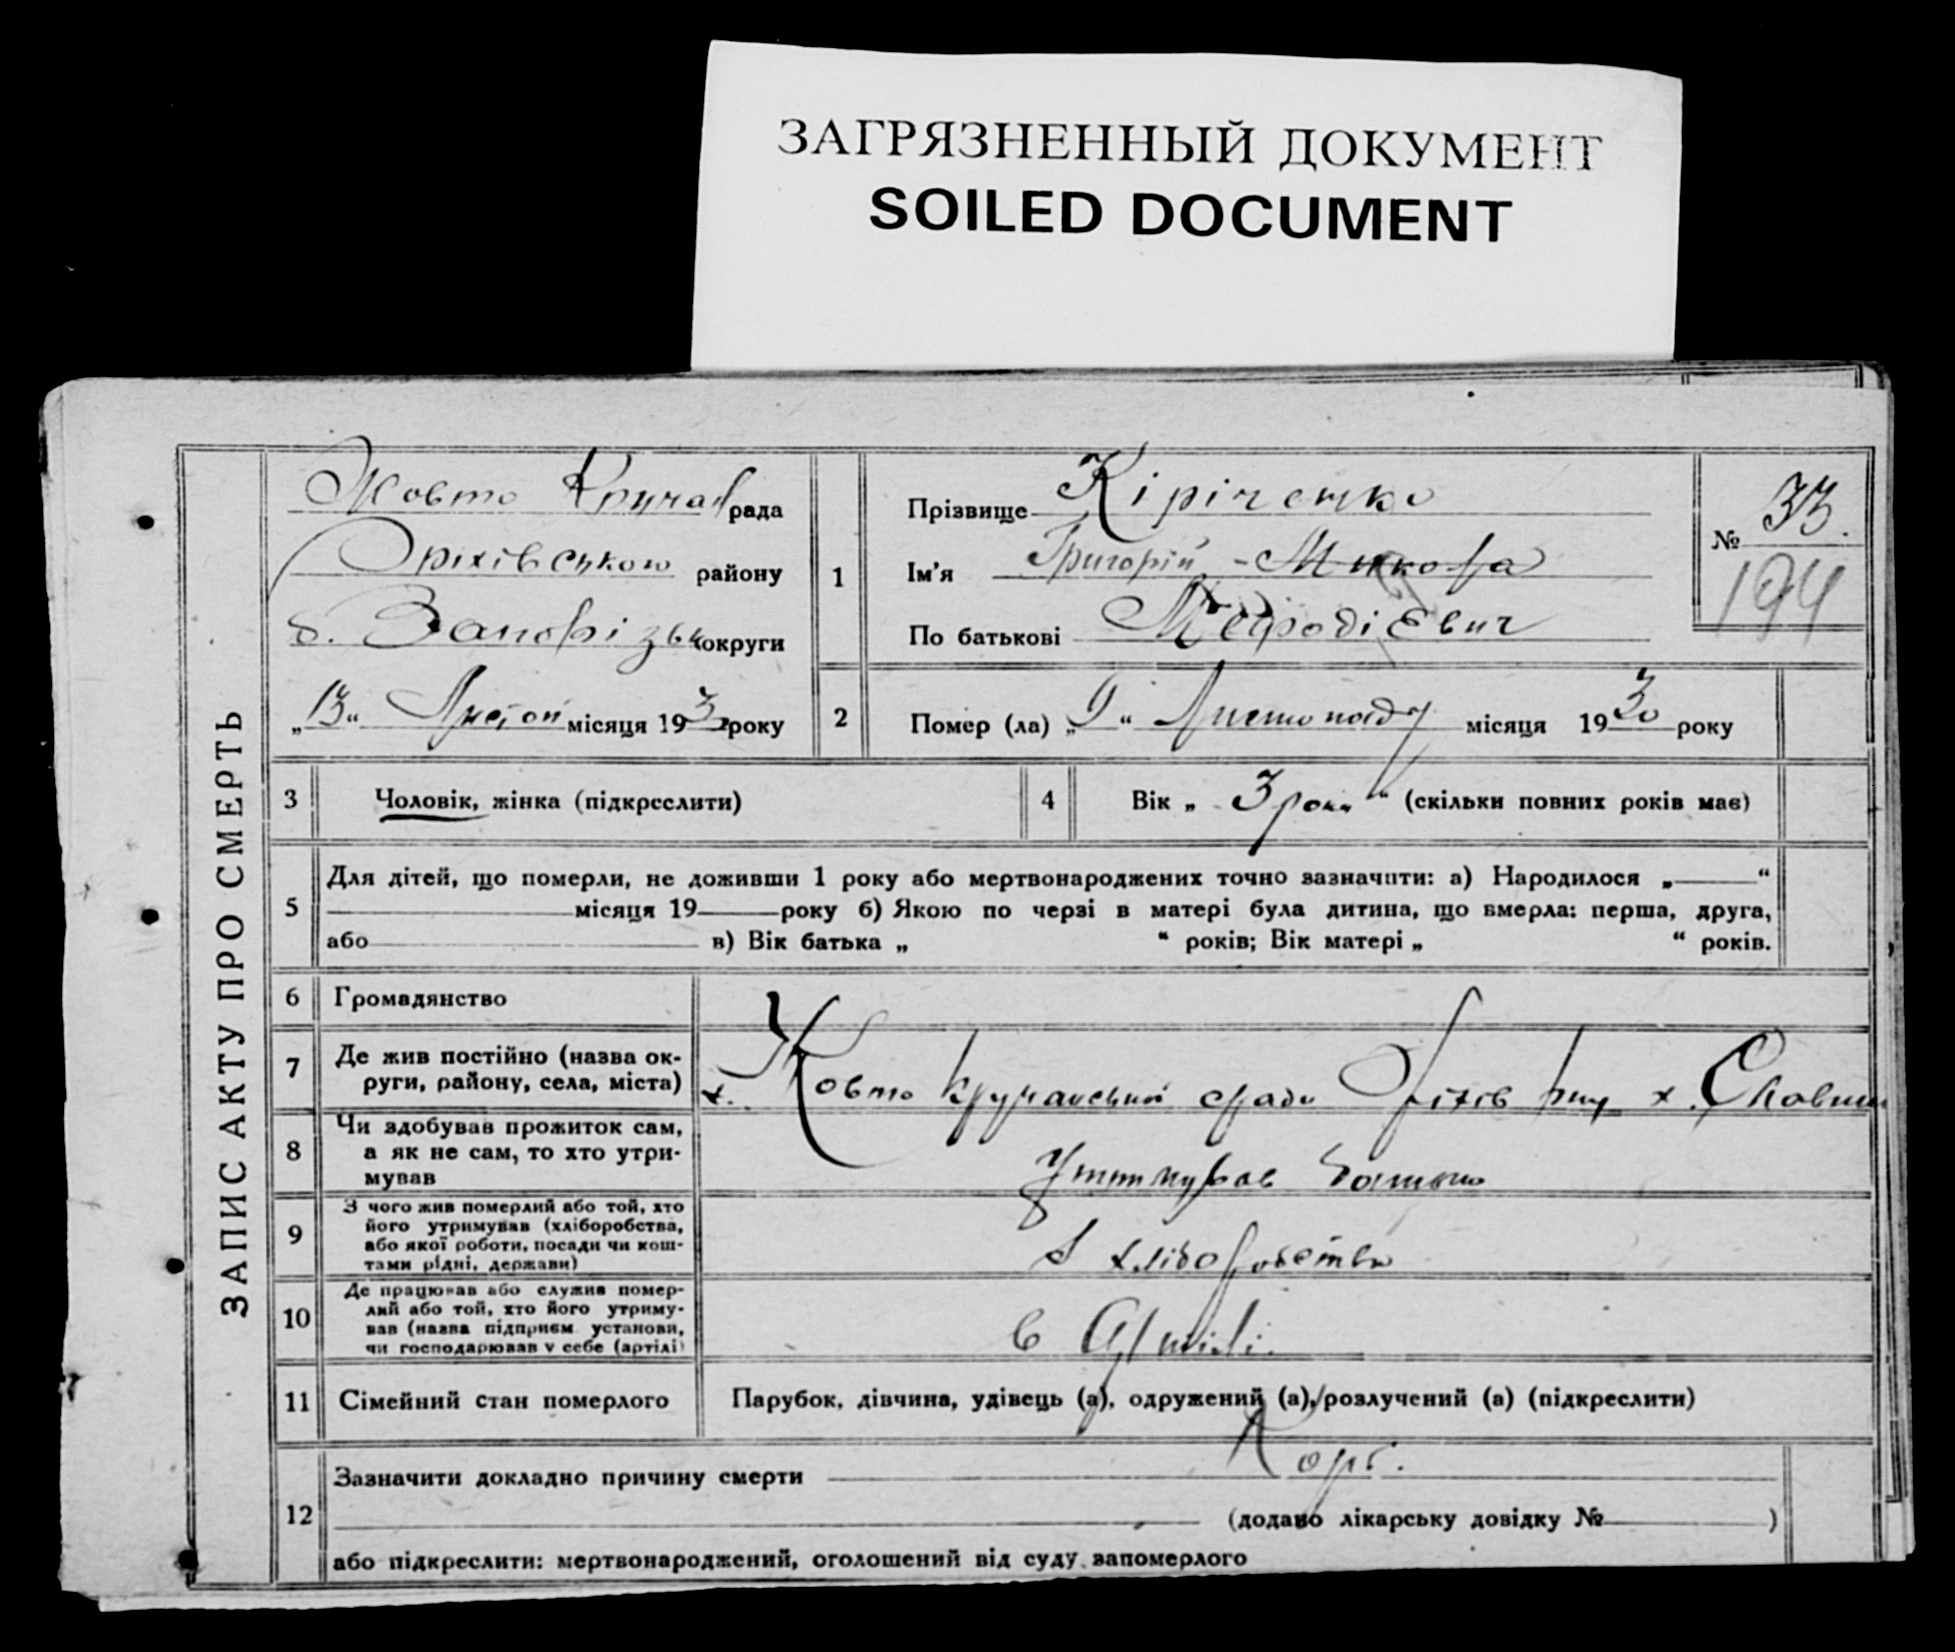 ЗАГРЯЗНЕННЫЙ ДОКУМЕНТ
SOILED DOCUMENT
ЗАПИС АКТУ ПРО СМЕРТЬ
Жовто Кручан рада
Оріхівською району
б. Запорізьк округи
„13“ місяця 193 року
1
Прізвище Кіріченко
Ім'я Григорій - Микола
По батькові Мефодієвич
№ 33.
194
2
Помер (ла) „9“ Листопаду місяця 1930 року
3
Чоловік, жінка (підкреслити)
4
Вік „3 роки“ (скільки повних років має)
5
Для дітей, що померли, не доживши 1 року або мертвонароджених точно зазначити: а) Народилося „ “
місяця 19 року б) Якою по черзі в матері була дитина, що вмерла: перша, друга,
або в) Вік батька „ “ років; Вік матері „ “ років.
6
Громадянство
7
Де жив постійно (назва ок-
руги, району, села, міста)
х. Жовто Кручанської сради Оріхів х.
8
Чи здобував прожиток сам,
а як не сам, то хто утри-
мував
Утримував батько
9
З чого жив померлий або той, хто
його утримував (хліборобства,
або якої роботи, посади чи кош-
тами рідні, держави)
З хліборобства
10
Де працював або служив помер-
лий або той, хто його утриму-
вав (назва підприєм. установи,
чи господарював у себе (артілі)
в Артілі.
11
Сімейний стан померлого
Парубок, дівчина, удівець (а), одружений (а), розлучений (а) (підкреслити)
12
Зазначити докладно причину смерти Корь.
(додано лікарську довідку № )
або підкреслити: мертвонароджений, оголошений від суду запомерлого